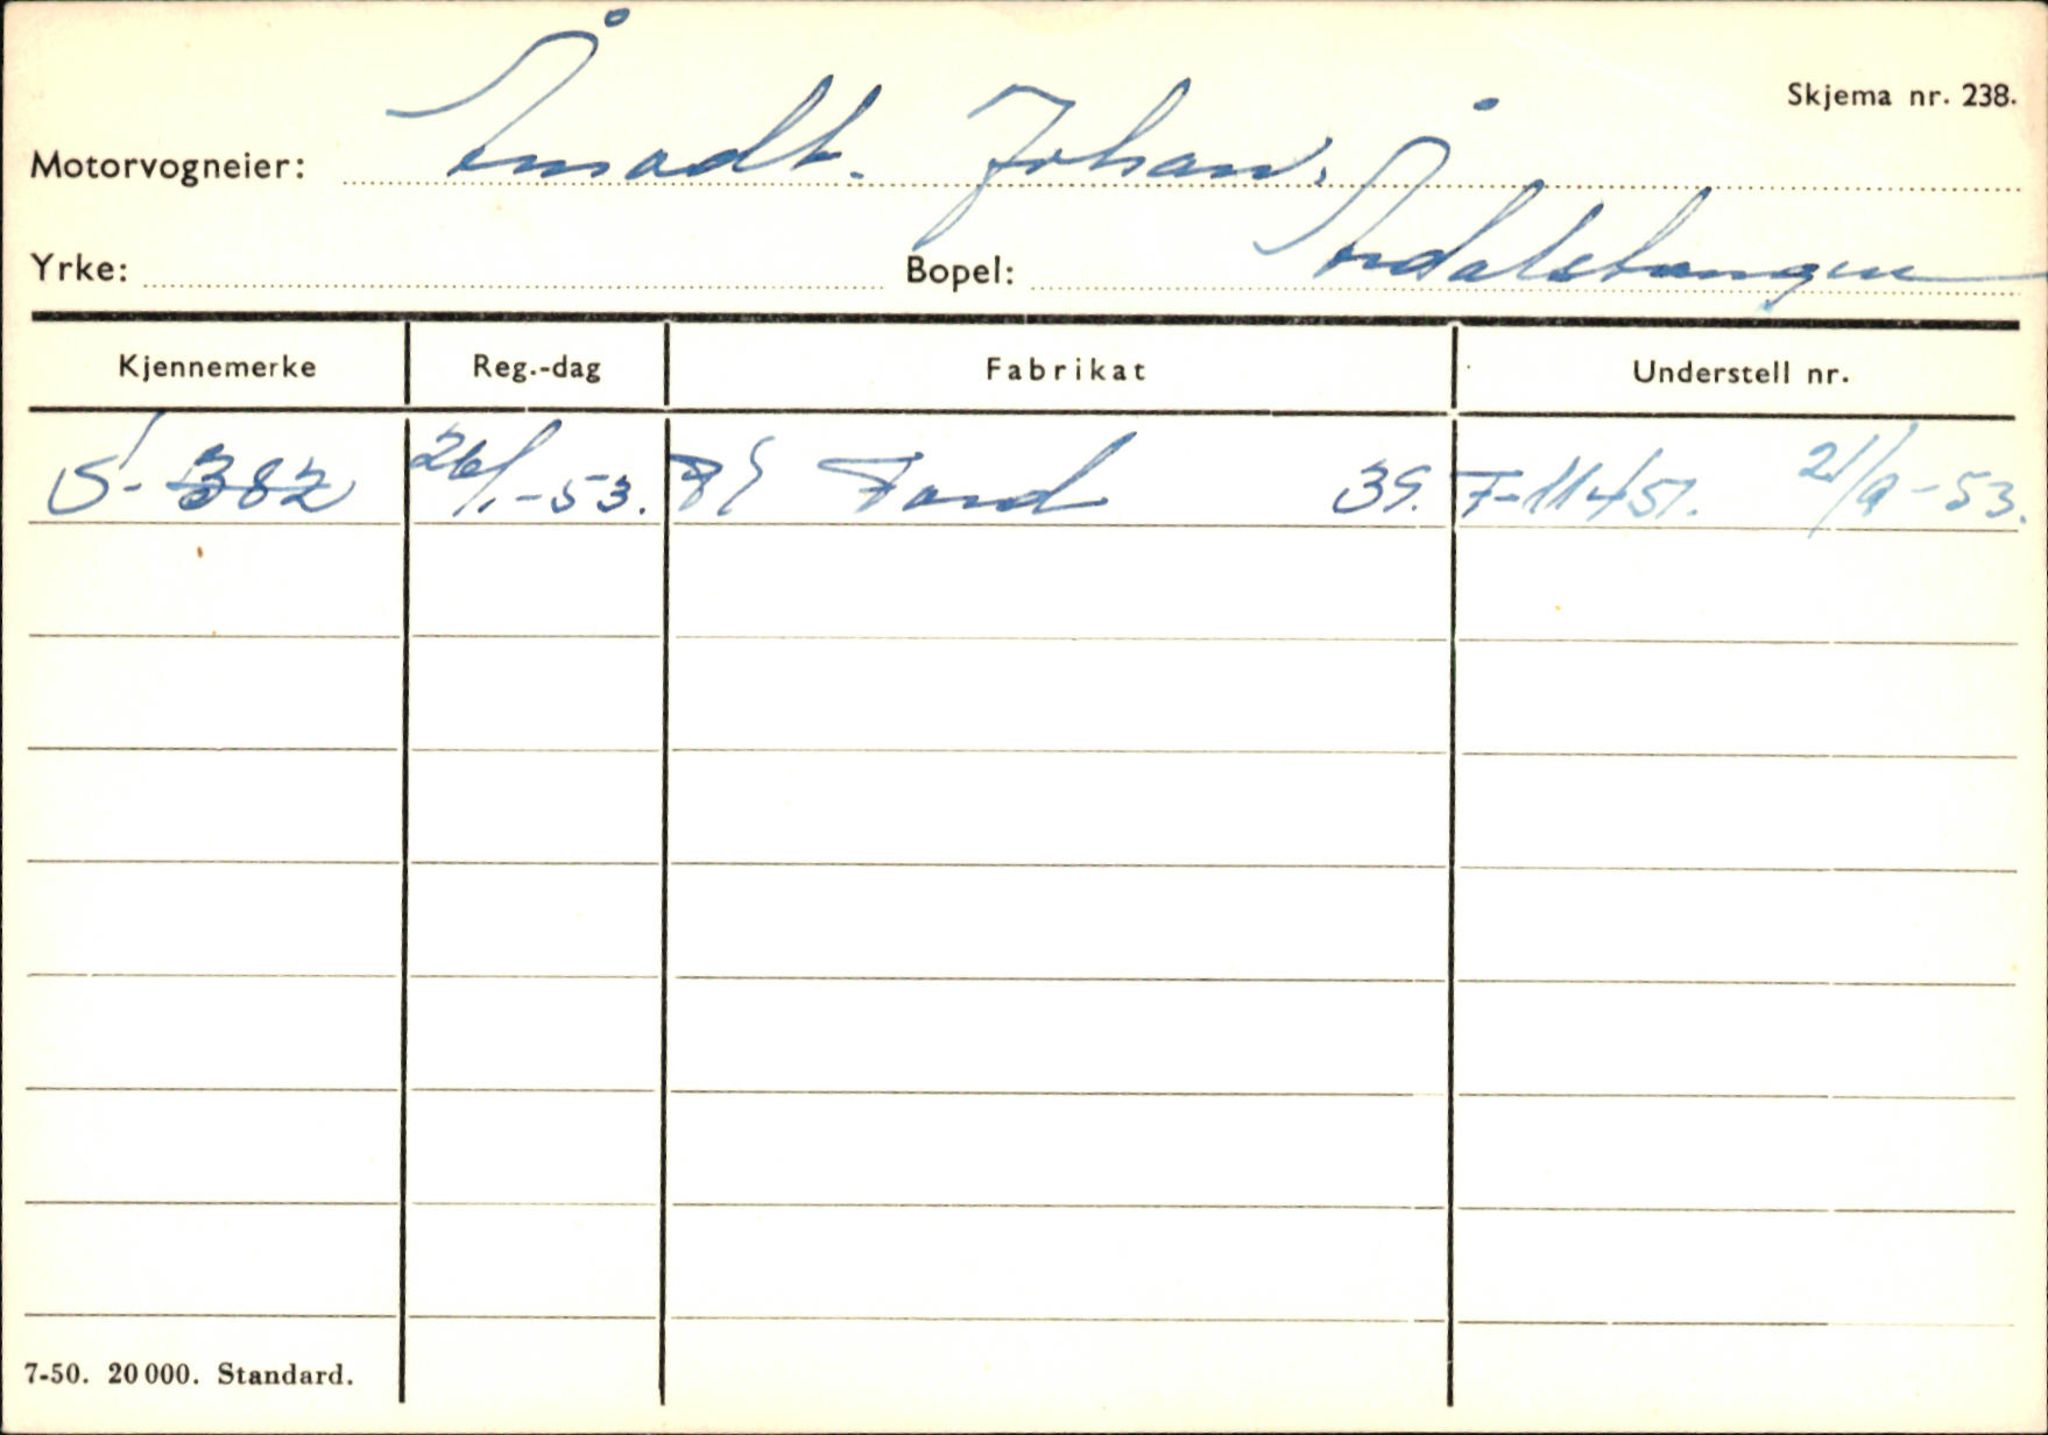 Skjema nr. 238.
Motorvogneier: Johan.
Yrke: Bopel: Årdalstangen
Kjennemerke Reg.-dag Fabrikat Understell nr.
S- 382 26/1-53. Ford 39. F-11451. 21/9-53.
7-50. 20 000. Standard.